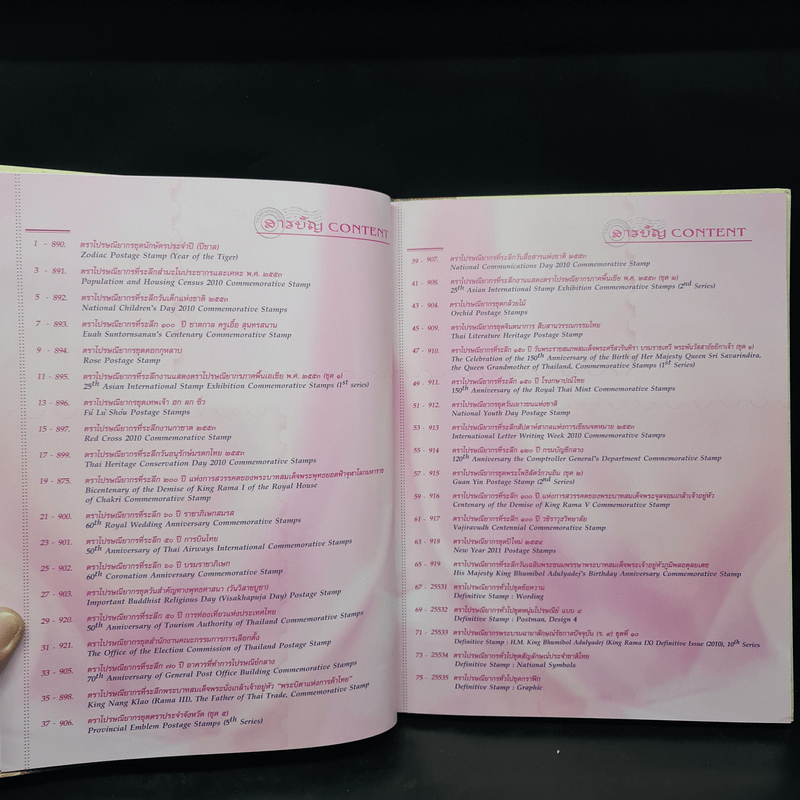 สารบัญ CONTENT
1 - 890. ตราไปรษณียากรชุดนักษัตรประจำปี (ปีขาล)
Zodiac Postage Stamp (Year of the Tiger)
3 - 891. ตราไปรษณียากรที่ระลึกสำมะโนประชากรและเคหะ พ.ศ. ๒๕๕๓
Population and Housing Census 2010 Commemorative Stamp
5 - 892. ตราไปรษณียากรที่ระลึกวันเด็กแห่งชาติ ๒๕๕๓
National Children's Day 2010 Commemorative Stamp
7 - 893. ตราไปรษณียากรที่ระลึก ๑๐๐ ปี ชาตกาล ครูเอื้อ สุนทรสนาน
Euah Suntornsanan's Centenary Commemorative Stamp
9 - 894. ตราไปรษณียากรชุดดอกกุหลาบ
Rose Postage Stamp
11 - 895. ตราไปรษณียากรที่ระลึกงานแสดงตราไปรษณียากรภาคพื้นเอเชีย พ.ศ. ๒๕๕๓ (ชุด ๑)
25th Asian International Stamp Exhibition Commemorative Stamps (1st series)
13 - 896. ตราไปรษณียากรชุดเทพเจ้า ฮก ลก ซิ่ว
Fú Lù Shòu Postage Stamps
15 - 897. ตราไปรษณียากรที่ระลึกงานกาชาด ๒๕๕๓
Red Cross 2010 Commemorative Stamp
17 - 899. ตราไปรษณียากรที่ระลึกวันอนุรักษ์มรดกไทย ๒๕๕๓
Thai Heritage Conservation Day 2010 Commemorative Stamps
19 - 875. ตราไปรษณียากรที่ระลึก ๒๐๐ ปี แห่งการสวรรคตของพระบาทสมเด็จพระพุทธยอดฟ้าจุฬาโลกมหาราช
Bicentenary of the Demise of King Rama I of the Royal House
of Chakri Commemorative Stamp
21 - 900. ตราไปรษณียากรที่ระลึก ๖๐ ปี ราชาภิเษกสมรส
60th Royal Wedding Anniversary Commemorative Stamps
23 - 901. ตราไปรษณียากรที่ระลึก ๕๐ ปี การบินไทย
50th Anniversary of Thai Airways International Commemorative Stamps
25 - 902. ตราไปรษณียากรที่ระลึก ๖๐ ปี บรมราชาภิเษก
60th Coronation Anniversary Commemorative Stamp
27 - 903. ตราไปรษณียากรชุดวันสำคัญทางพุทธศาสนา (วันวิสาขบูชา)
Important Buddhist Religious Day (Visakhapuja Day) Postage Stamp
29 - 920. ตราไปรษณียากรที่ระลึก ๕๐ ปี การท่องเที่ยวแห่งประเทศไทย
50th Anniversary of Tourism Authority of Thailand Commemorative Stamps
31 - 921. ตราไปรษณียากรชุดสำนักงานคณะกรรมการการเลือกตั้ง
The Office of the Election Commission of Thailand Postage Stamp
33 - 905. ตราไปรษณียากรที่ระลึก ๗๐ ปี อาคารที่ทำการไปรษณีย์กลาง
70th Anniversary of General Post Office Building Commemorative Stamps
35 - 898. ตราไปรษณียากรที่ระลึกพระบาทสมเด็จพระนั่งเกล้าเจ้าอยู่หัว "พระบิดาแห่งการค้าไทย"
King Nang Klao (Rama III), The Father of Thai Trade, Commemorative Stamp
37 - 906. ตราไปรษณียากรชุดตราประจำจังหวัด (ชุด ๕)
Provincial Emblem Postage Stamps (5th Series)
สารบัญ CONTENT
39 - 907. ตราไปรษณียากรที่ระลึกวันสื่อสารแห่งชาติ ๒๕๕๓
National Communications Day 2010 Commemorative Stamp
41 - 908. ตราไปรษณียากรที่ระลึกงานแสดงตราไปรษณียากรภาคพื้นเอเชีย พ.ศ. ๒๕๕๓ (ชุด ๒)
25th Asian International Stamp Exhibition Commemorative Stamps (2nd Series)
43 - 904. ตราไปรษณียากรชุดกล้วยไม้
Orchid Postage Stamps
45 - 909. ตราไปรษณียากรชุดจินตนาการ สืบสานวรรณกรรมไทย
Thai Literature Heritage Postage Stamp
47 - 910. ตราไปรษณียากรที่ระลึก ๑๕๐ ปี วันพระราชสมภพสมเด็จพระศรีสวรินทิรา บรมราชเทวี พระพันวัสสาอัยยิกาเจ้า (ชุด ๑)
The Celebration of the 150th Anniversary of the Birth of Her Majesty Queen Sri Savarindira,
the Queen Grandmother of Thailand, Commemorative Stamps (1st Series)
49 - 911. ตราไปรษณียากรที่ระลึก ๑๕๐ ปี โรงกษาปณ์ไทย
150th Anniversary of the Royal Thai Mint Commemorative Stamps
51 - 912. ตราไปรษณียากรชุดวันเยาวชนแห่งชาติ
National Youth Day Postage Stamp
53 - 913 ตราไปรษณียากรที่ระลึกสัปดาห์สากลแห่งการเขียนจดหมาย ๒๕๕๓
International Letter Writing Week 2010 Commemorative Stamps
55 - 914 ตราไปรษณียากรที่ระลึก ๑๒๐ ปี กรมบัญชีกลาง
120th Anniversary the Comptroller General's Department Commemorative Stamp
57 - 915 ตราไปรษณียากรชุดพระโพธิสัตว์กวนอิม (ชุด ๒)
Guan Yin Postage Stamp (2nd Series)
59 - 916 ตราไปรษณียากรที่ระลึก ๑๐๐ ปี แห่งการสวรรคตของพระบาทสมเด็จพระจุลจอมเกล้าเจ้าอยู่หัว
Centenary of the Demise of King Rama V Commemorative Stamp
61 - 917 ตราไปรษณียากรที่ระลึก ๑๐๐ ปี วชิราวุธวิทยาลัย
Vajiravudh Centennial Commemorative Stamp
63 - 918 ตราไปรษณียากรชุดปีใหม่ ๒๕๕๔
New Year 2011 Postage Stamps
65 - 919 ตราไปรษณียากรที่ระลึกวันเฉลิมพระชนมพรรษาพระบาทสมเด็จพระเจ้าอยู่หัวภูมิพลอดุลยเดช
His Majesty King Bhumibol Adulyadej's Birthday Anniversary Commemorative Stamp
67 - 25531 ตราไปรษณียากรทั่วไปชุดข้อความ
Definitive Stamp : Wording
69 - 25532 ตราไปรษณียากรทั่วไปชุดหนุ่มไปรษณีย์ แบบ ๔
Definitive Stamp : Postman, Design 4
71 - 25533 ตราไปรษณียากรพระบรมฉายาลักษณ์รัชกาลปัจจุบัน (ร. ๙) ชุดที่ ๑๐
Definitive Stamp : H.M. King Bhumibol Adulyadej (King Rama IX) Definitive Issue (2010), 10th Series
73 - 25534 ตราไปรษณียากรทั่วไปชุดสัญลักษณ์ประจำชาติไทย
Definitive Stamp : National Symbols
75 - 25535 ตราไปรษณียากรทั่วไปชุดกราฟิก
Definitive Stamp : Graphic